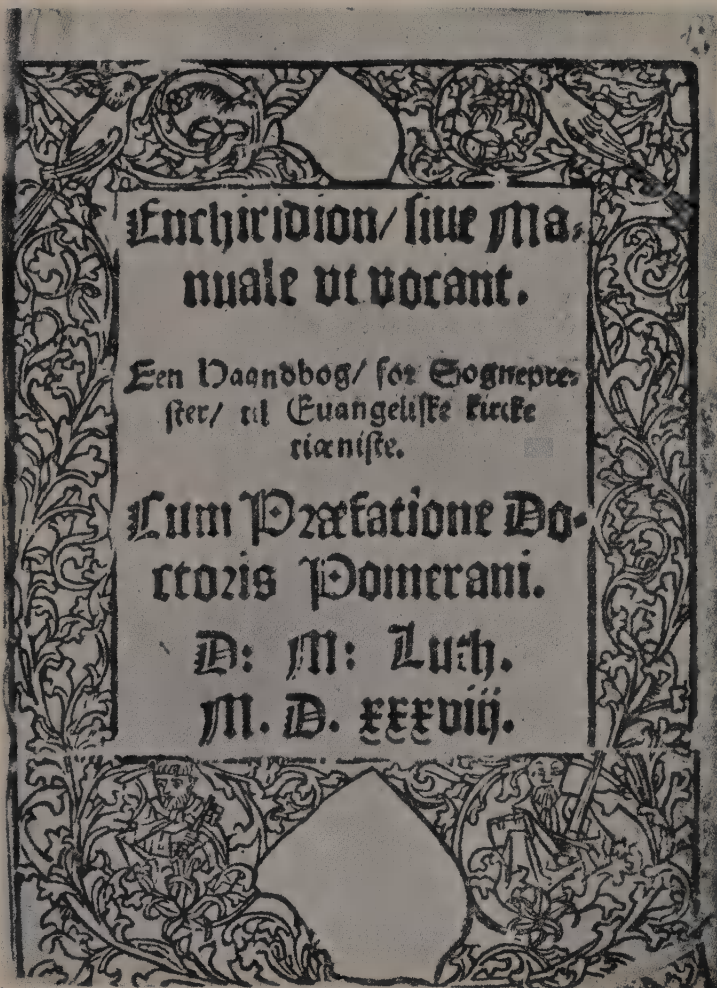 Enchiridion/ siue Ma⸗
nuale vt vocant.
Een Haandbog/ for Sognepre⸗
ster/ til Euangeliske kircke
tiæniste.
Cum Præfatione Do⸗
ctoris Pomerani.
D: M: Luth.
M. D. xxxviij.